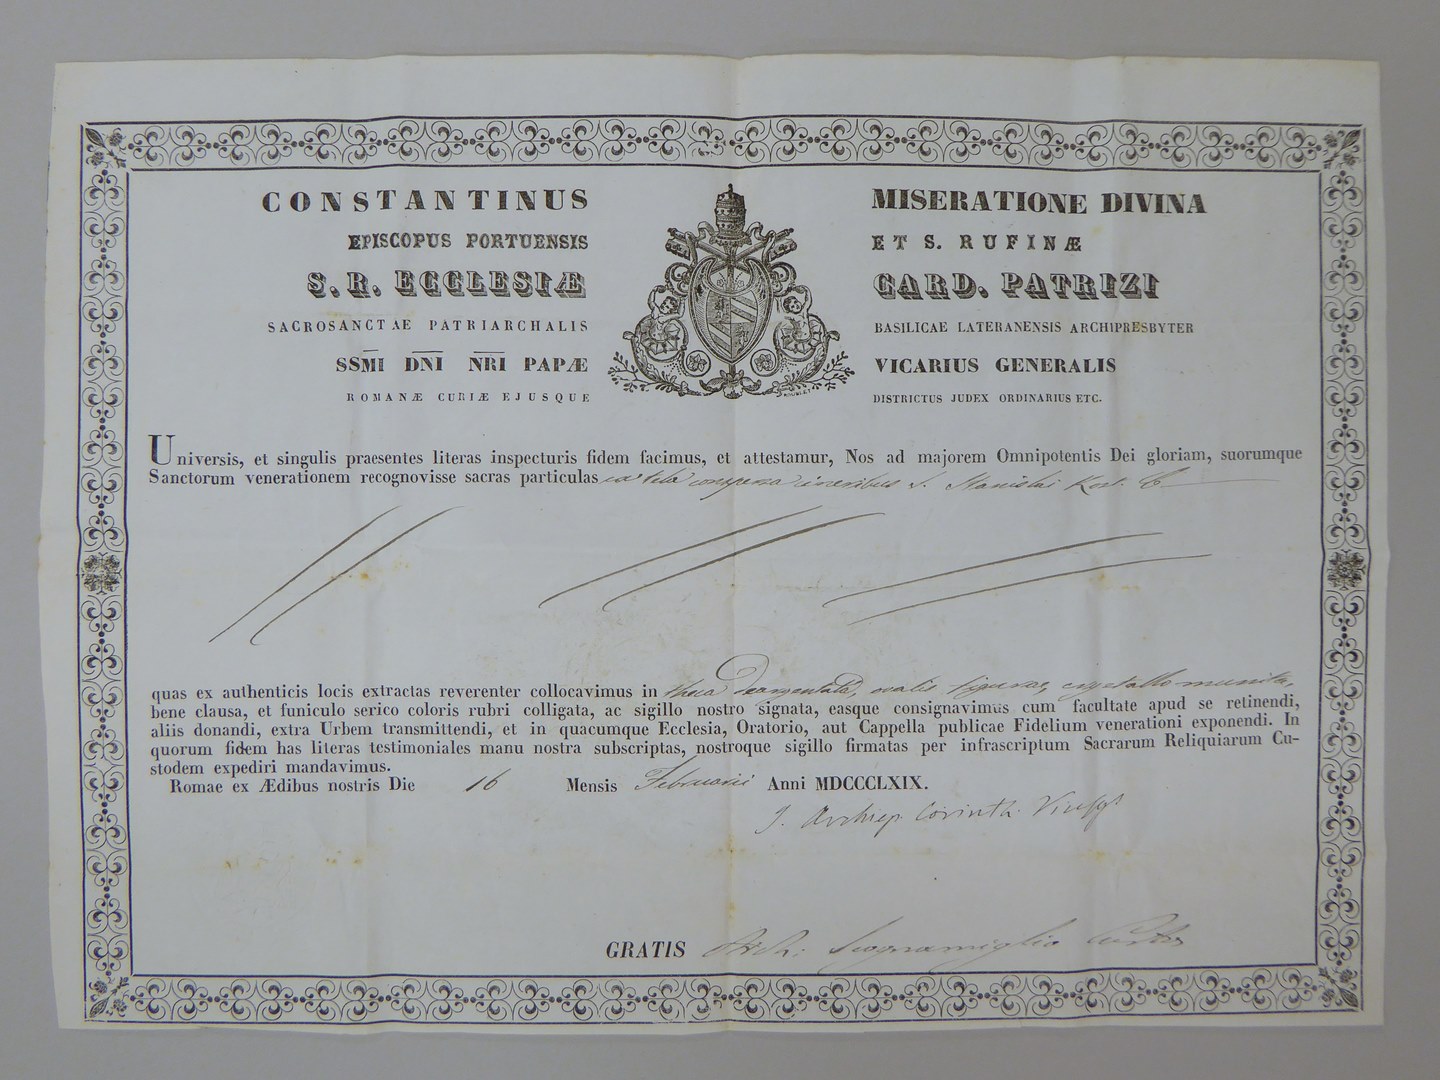 CONSTANTINUS MISERATIONE DIVINA
EPISCOPUS PORTUENSIS ET S. RUFINÆ
S. R. ECCLESIÆ CARD. PATRIZI
SACROSANCTAE PATRIARCHALIS BASILICAE LATERANENSIS ARCHIPRESBYTER
SSM̅I DN̅I NR̅I PAPÆ VICARIUS GENERALIS
ROMANÆ CURIÆ EJUSQUE DISTRICTUS JUDEX ORDINARIUS ETC.
Universis, et singulis praesentes literas inspecturis fidem facimus, et attestamur, Nos ad majorem Omnipotentis Dei gloriam, suorumque
Sanctorum venerationem recognovisse sacras particulas ex tela conspersa cineribus S. Stanislai Kost. C.
quas ex authenticis locis extractas reverenter collocavimus in theca deargentata, ovalis figurae, crystallo munita,
bene clausa, et funiculo serico coloris rubri colligata, ac sigillo nostro signata, easque consignavimus cum facultate apud se retinendi,
aliis donandi, extra Urbem transmittendi, et in quacumque Ecclesia, Oratorio, aut Cappella publicae Fidelium venerationi exponendi. In
quorum fidem has literas testimoniales manu nostra subscriptas, nostroque sigillo firmatas per infrascriptum Sacrarum Reliquiarum Cu-
stodem expediri mandavimus.
Romae ex Ædibus nostris Die 16 Mensis Februarii Anni MDCCCLXIX.
J. Archiep. Corinth. Vicesgt
GRATIS Arch. Scognamiglio Custos